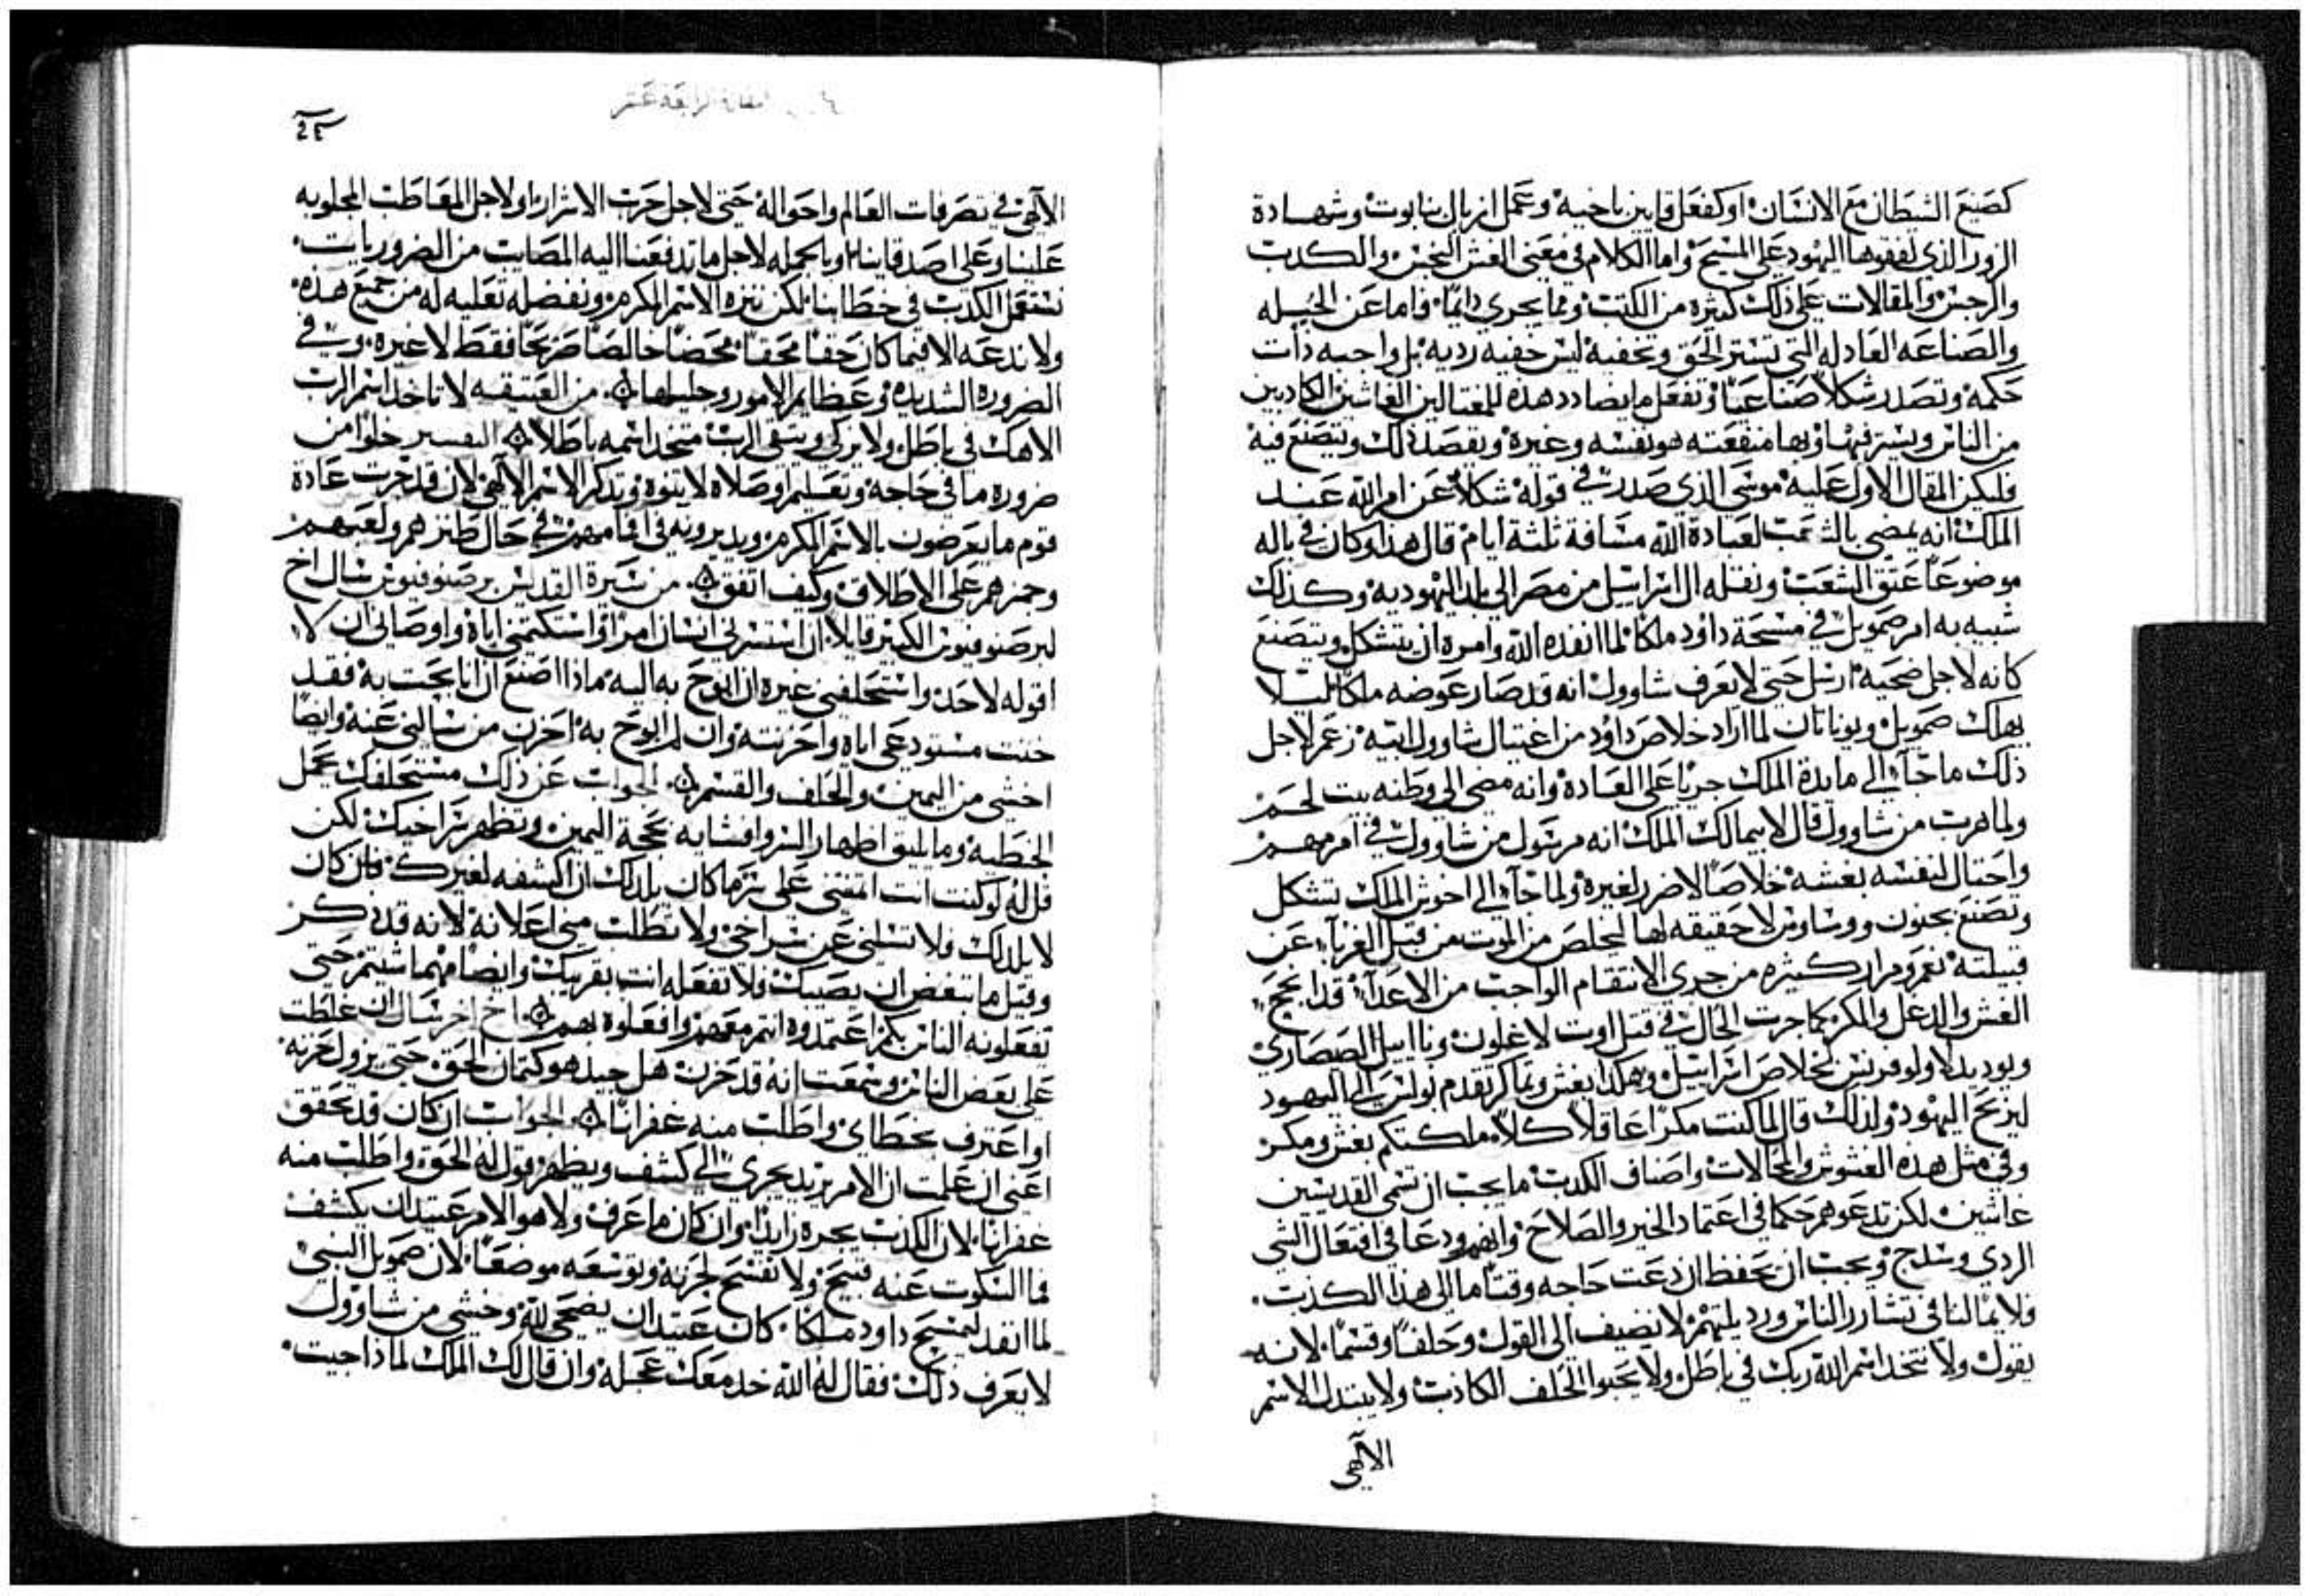 كصنيع الشيطان مع الانسان او كفعل قايين باخيه وعمل ازبال بنابوت وشهادة
الزور الذي لفقوها اليهود على المسيح واما الكلام في معنى الغش النجس والكدب
والرجس والمقالات على ذلك كثيره من الكتب ومما يجرى دايمًا فاما عن الحيله
والصناعه العادله التي تستر الحق وتخفيه ليس خفيه رديه بل واجبه دات
حكمه وتصدر شكلًا صناعيًا وتفعل ما يضادد هذه للمغتالين الغاشين الكادبين
من الناس ويستر فيها وبها منفعته هو نفسه وغيره ويقصد ذلك ويتصنع فيه
فليكن المقال الاول عليه موسى الذي صدر في قوله شكلًا عن امر الله عند
الملك انه يمضى بالشعب لعبادة الله مسافة ثلثة ايام قال هذا وكان في باله
موضوعًا عتق الشعب ونقله ال اسراييل من مصر الى بلد اليهوديه وكذلك
شبيه به امر صمويل في مسحة داود ملكًا لما انفده الله وامره ان يتشكل ويتصنع
كانه لاجل ضحيه ارسل حتى لا يعرف شاوول انه قد صار عوضه ملكًا ليلا
يهلك صمويل ويوناتان لما اراد خلاص داود من اغتيال شاوول ابيه زعم لاجل
ذلك ما جآء الى مايدة الملك جريًا على العادة وانه مضى الى وطنه بيت لحم
ولما هرب من شاوول قال لابيمالك الملك انه مرسول من شاوول في امر مهم
واحتال لنفسه بغشه خلاصًا لا ضرر لغيره ولما جآء الى اخوش الملك تشكل
وتصنع بجنون ووساوس لا حقيقه لها ليخلص من الموت من قبل الغربآء عن
قبيلته نعم ومرار كثيره من جدى الانتقام الواجب من الاعدآء قد انجح
الغش والدغل والمكر كما جرت الحال في قتل اوت لاغلون وياابيل الصصاري
ويوديد لاولوفرنس لخلاص اسراييل وهكدا بغش ومماكر تقدم بولس الى اليهود
ليربح اليهود ولذلك قال لما كنت مكرًا عاقلًا كلًا ملكتكم بغش ومكر
وفي مثل هذه الغشوش والمحالات واصناف الكدب ما يجب ان تسمى القديسين
غاشين لكن تدعوهم حكما في اعتماد الخير والصلاح وانهم ودعا في افتعال الشى
الردى وسدج ويجب ان نحفظ ان دعت حاجه وقتًا ما الى هذا الكذب
فلا يما لنا في تسارر الناس ورديلتهم لا نضيف الى القول وحلفًا وقسمًا لانه
يقول ولا تتخد اسم الله ربك في باطل ولا يحبوا الحلف الكاذب ولا يبتدل الاسم
الآلهى
الآلهى في تصرفات العالم واحواله حتى لاجل حرب الاشرار ولاجل المعاطب المجلوبه
علينا وعلى اصدقاينا وبالجمله لاجل ما تدفعنا اليه المصايب من الضروريات
نستعمل الكذب في خطابنا لكن ننزه الاسم المكرم ونفضله تعليه له من جميع هذه
ولا ندعه الا فيما كان حقًا محقًا محضًا خالصًا صريحًا فقط لا غيره وفي
الضروره الشديده وعظايم الامور وجليلها من العتيقه لا تاخد اسم الرب
الاهك في باطل ولا يزكى وينقى الرب متخد اسمه باطلًا التفسير خلوًا من
ضروره ما في حاجه وتعليم او صلاه لا يتوه وتدكر الاسم الآلهى لان قد جرت عادة
قوم ما يعرضون بالاسم المكرم ويديرونه في افمامهم في حال طنزهم ولعبهم
وحمزهم على الاطلاق وكيف اتفق من سيرة القديس برصنوفيوس سال اخ
لبرصنوفيوس الكبير قايلًا ان استسرني انسان امرًا واستكتمني اياه واوصاني ان لا
اقوله لاحد واستحلفني غيره ان ابوح به اليه ماذا اصنع ان انا بحت به فقد
خنت مستودعى اياه واحزنته وان لم ابوح به احزن من سالني عنه وايضًا
اخشى من اليمين والحلف والقسم الجواب عن ذلك مستحلفك عمل
الخطيه وما يليق اظهار السر وافشايه بحجة اليمين وتظهر سر اخيك لكن
قل له لو كنت انت امنتني على سر ما كان يلدلك ان اكشفه لغيرك فان كان
لا يلدلك فلا تسلني عن سر اخي ولا تطلب مني اعلانه لانه قد ذكر
وقيل ما تبغض ان يصيبك فلا تفعله انت بقريبك وايضًا مهما شيتم حتى
تفعلونه الناس بكم اعتمدوه انتم معهم وافعلوه بهم اخ اخر سال ان غلطت
على بعض الناس وسمعت انه قد حزن هل جيد هو كتمان الحق حتى يزول حزنه
او اعترف بخطاى واطلب منه غفرانًا الجواب ان كان قد تحقق
اعني ان علمت ان الامر يزيد يجرى الى كشف ويظهر قول له الحق واطلب منه
غفرانًا لان الكذب يجره زايدًا وان كان ما عرف ولا هو الامر عتيد ان يكشف
فما السكوت عنه قبيح ولا تفسح لحزنه وتوسعه موضعًا لان صمويل النبي
لما انفد ليمسح داود ملكًا كان عتيد ان يضحى لله وخشي من شاوول
لا يعرف ذلك فقال له الله خد معك عجله وان قال لك الملك لماذا جيت